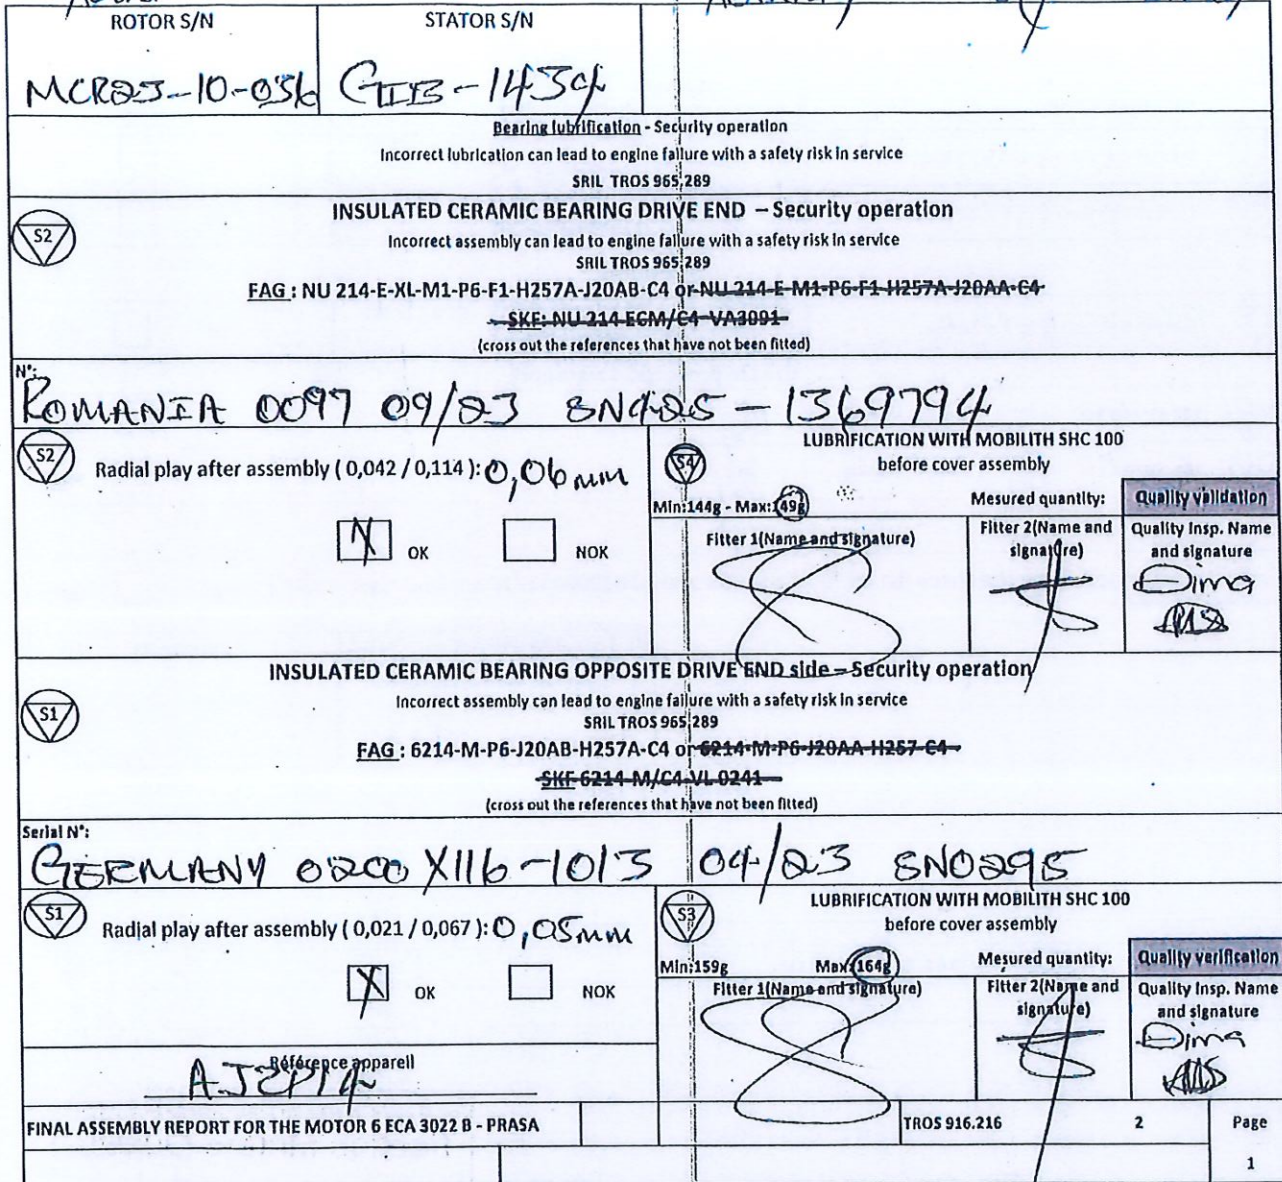 ROTOR S/N
STATOR S/N
MCR23-10-036
GIB-1434
Bearing lubrification - Security operation
Incorrect lubrication can lead to engine failure with a safety risk in service
SRIL TROS 965 289
S2
INSULATED CERAMIC BEARING DRIVE END – Security operation
Incorrect assembly can lead to engine failure with a safety risk in service
SRIL TROS 965 289
FAG : NU 214-E-XL-M1-P6-F1-H257A-J20AB-C4 or NU 214-E-M1-P6-F1-H257A-J20AA-C4
SKF: NU 214 ECM/C4-VA3091
(cross out the references that have not been fitted)
N°:
ROMANIA 0097 09/23 SN425-1369794
S2
Radial play after assembly ( 0,042 / 0,114 ): 0,06 mm
OK
NOK
S4
LUBRIFICATION WITH MOBILITH SHC 100
before cover assembly
Min:144g - Max:149g
Mesured quantity:
Quality validation
Fitter 1(Name and signature)
Fitter 2(Name and signature)
Quality Insp. Name and signature
Dima
INSULATED CERAMIC BEARING OPPOSITE DRIVE END side – Security operation
S1
Incorrect assembly can lead to engine failure with a safety risk in service
SRIL TROS 965 289
FAG : 6214-M-P6-J20AB-H257A-C4 or 6214-M-P6-J20AA-H257-C4
SKF 6214-M/C4-VL-0241
(cross out the references that have not been fitted)
Serial N°:
GERMANY 0200 X116-1013 04/23 SN0295
S1
Radial play after assembly ( 0,021 / 0,067 ): 0,05mm
OK
NOK
S3
LUBRIFICATION WITH MOBILITH SHC 100
before cover assembly
Min:159g
Max:164g
Mesured quantity:
Quality verification
Fitter 1(Name and signature)
Fitter 2(Name and signature)
Quality Insp. Name and signature
Dima
Référence appareil
FINAL ASSEMBLY REPORT FOR THE MOTOR 6 ECA 3022 B - PRASA
TROS 916.216
2
Page
1